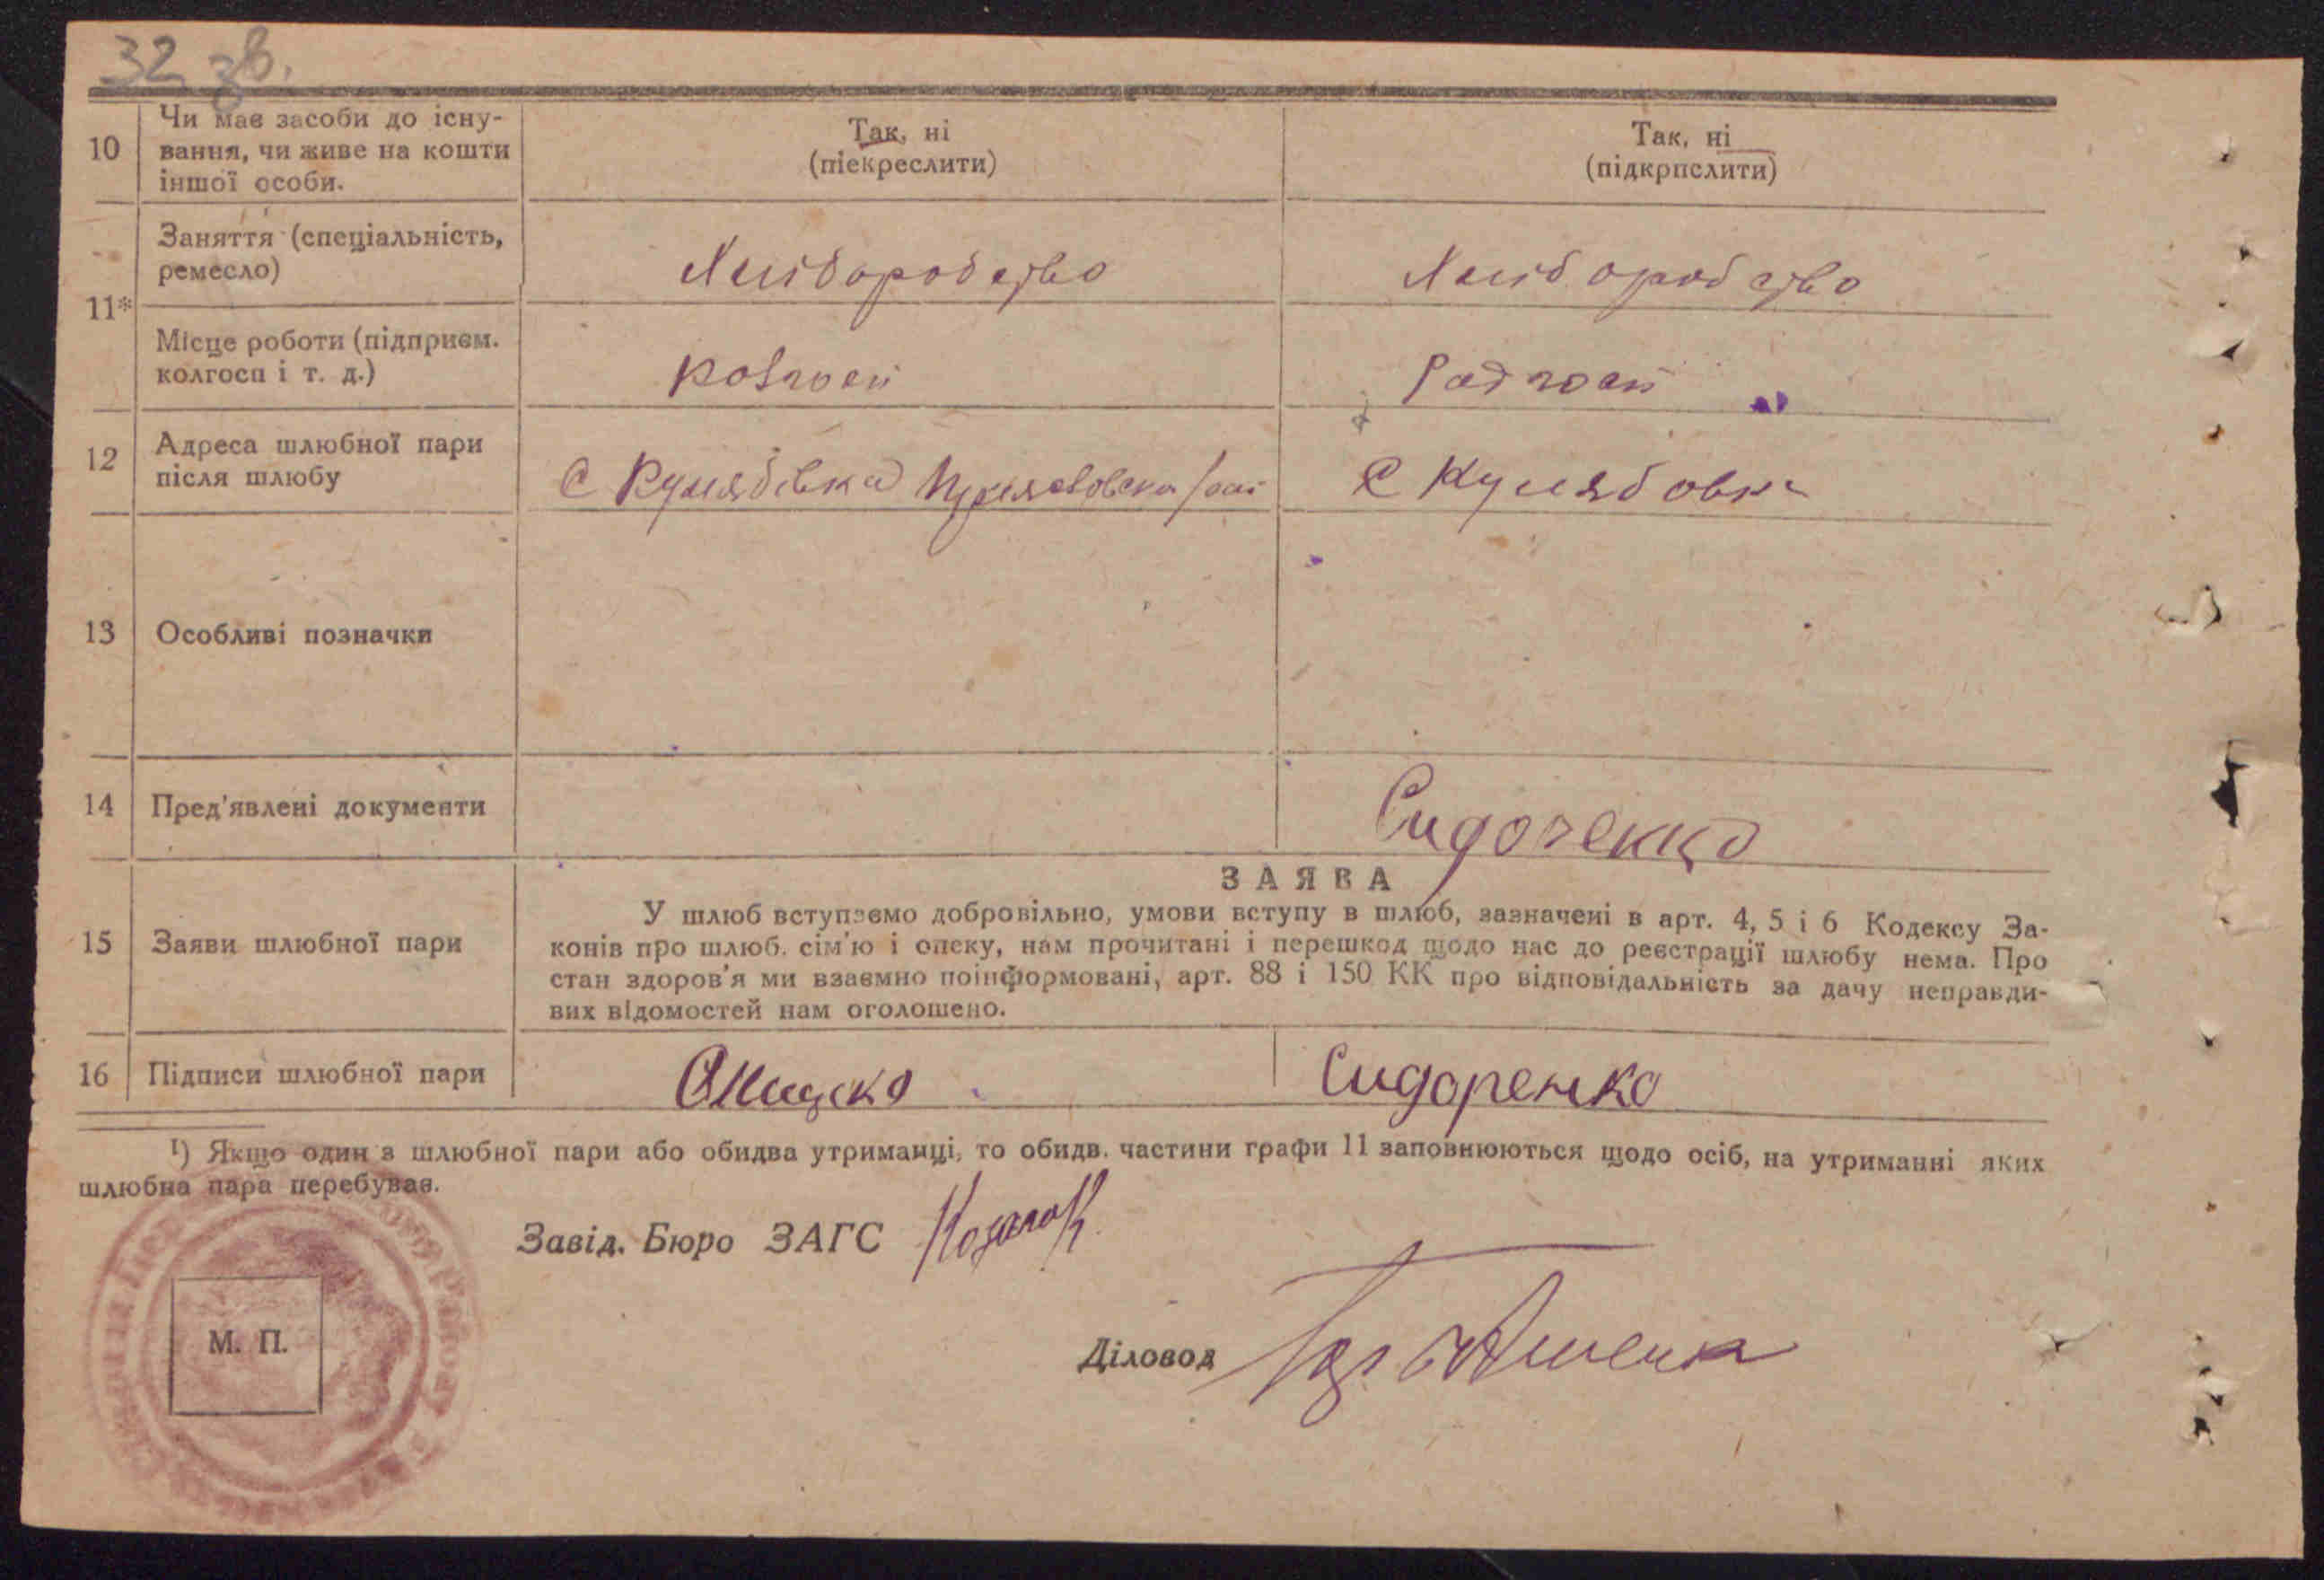 32 зв.
10 Чи має засоби до існу-
вання, чи живе на кошти
іншої особи.
Так, ні
(піекреслити)
Так, ні
(підкрпслити)
11*
Заняття (спеціальність,
ремесло)
Хліборобство
Хліборобство
Місце роботи (підприєм.
колгосп і т. д.)
Радгосп
12 Адреса шлюбної пари
після шлюбу
с Кулябівка
с Кулябовка
13 Особливі позначки
14 Пред'явлені документи
Сидоренко
15 Заяви шлюбної пари
ЗАЯВА
У шлюб вступаємо добровільно, умови вступу в шлюб, зазначені в арт. 4, 5 і 6 Кодексу За-
конів про шлюб. сім'ю і опеку, нам прочитані і перешкод щодо нас до реєстрації шлюбу нема. Про
стан здоров'я ми взаємно поінформовані, арт. 88 і 150 КК про відповідальність за дачу неправди-
вих відомостей нам оголошено.
16 Підписи шлюбної пари
Сидоренко
¹) Якщо один з шлюбної пари або обидва утриманці, то обидв. частини графи 11 заповнюються щодо осіб, на утриманні яких
шлюбна пара перебуває.
Завід. Бюро ЗАГС
М. П.
Діловод